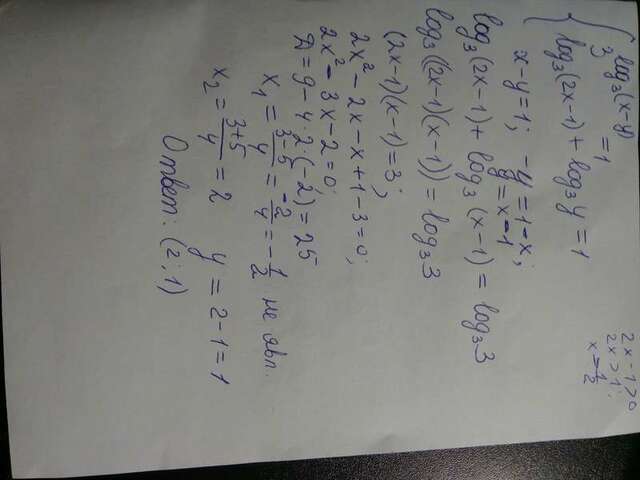 { 3^log₃(x-y) = 1
log₃(2x-1) + log₃y = 1
2x-1>0
2x>1;
x=½
x-y=1; -y=1-x;
y=x-1
log₃(2x-1)+log₃(x-1)=log₃3
log₃((2x-1)(x-1))=log₃3
(2x-1)(x-1)=3;
2x²-2x-x+1-3=0;
2x²-3x-2=0;
Д=9-4·2·(-2)=25
x₁=(3-5)/4=-2/4=-1/2 не явл.
x₂=(3+5)/4=2 y=2-1=1
Ответ: (2;1)